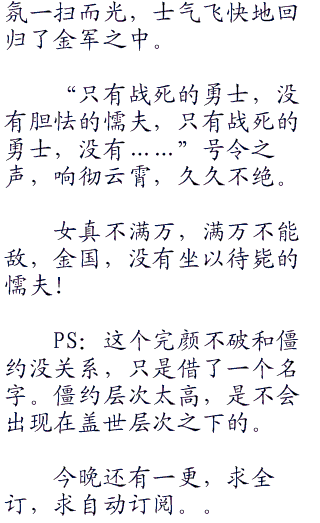 氛一扫而光，士气飞快地回
归了金军之中。
“只有战死的勇士，没
有胆怯的懦夫，只有战死的
勇士，没有……”号令之
声，响彻云霄，久久不绝。
女真不满万，满万不能
敌，金国，没有坐以待毙的
懦夫！
PS：这个完颜不破和僵
约没关系，只是借了一个名
字。僵约层次太高，是不会
出现在盖世层次之下的。
今晚还有一更，求全
订，求自动订阅。。